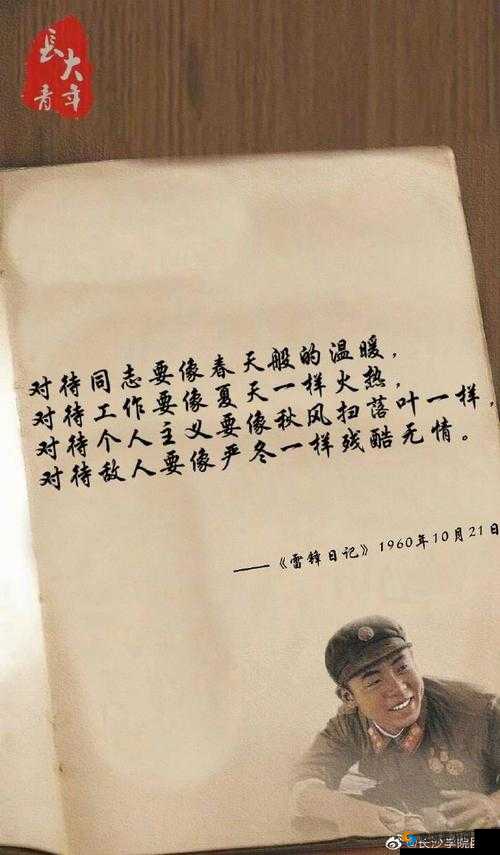 長大青年
对待同志要像春天般的温暖，
对待工作要像夏天一样火热，
对待个人主义要像秋风扫落叶一样，
对待敌人要像严冬一样残酷无情。
——《雷锋日记》1960年10月21日
@长沙学院